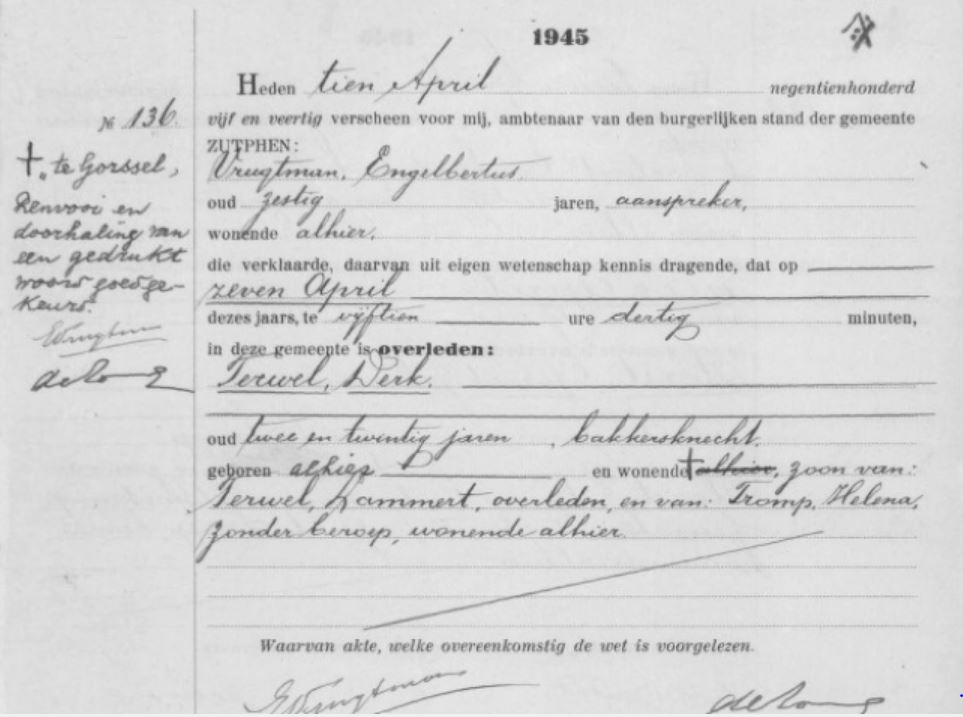 1945
Heden tien April negentienhonderd
№ 136.
vijf en veertig verscheen voor mij, ambtenaar van den burgerlijken stand der gemeente
ZUTPHEN:
Vrugtman, Engelbertus.
oud zestig jaren, aanspreker,
wonende alhier,
die verklaarde, daarvan uit eigen wetenschap kennis dragende, dat op
zeven April
dezes jaars, te vijftien ure dertig minuten,
in deze gemeente is overleden:
Terwel, Derk.
oud twee en twintig jaren, bakkersknecht,
geboren alhier en wonende alhier, zoon van:
Terwel, Lammert, overleden, en van: Tromp, Helena,
zonder beroep, wonende alhier.
Waarvan akte, welke overeenkomstig de wet is voorgelezen.
EVrugtman
de Jong
† „te Gorssel,
Renvooi en
doorhaling van
een gedrukt
woord goedge-
keurd.
EVrugtman
de Jong